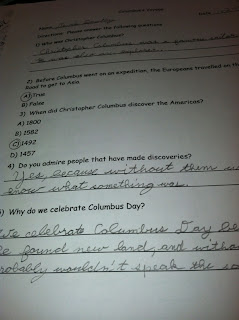 Name
Directions: Please answer the following questions
1) Who was Christopher Columbus?
Christopher Columbus was a
2) Before Columbus went on an expedition, the Europeans travelled on th
Road to get to Asia.
A) True
B) False
3) When did Christopher Columbus discover the Americas?
A) 1800
B) 1582
C) 1492
D) 1457
4) Do you admire people that have made discoveries?
Yes because without them w
know what something was.
) Why do we celebrate Columbus Day?
We celebrate Columbus Day be
e found new land, and witho
robably wouldn't speak the sa